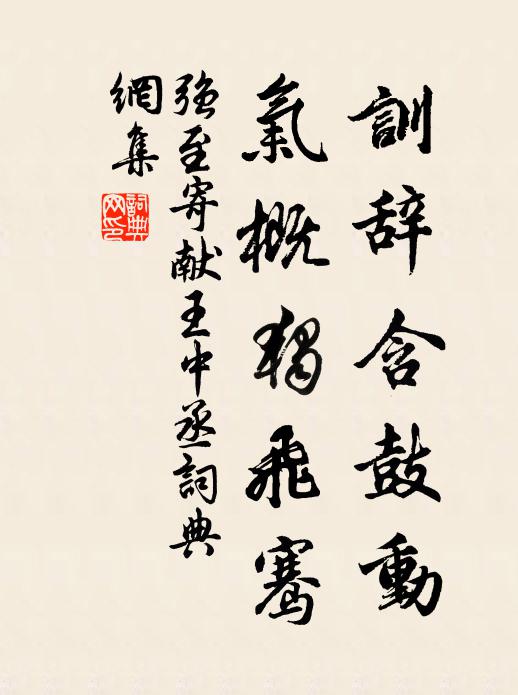 訓辞含鼓動
氣概独飛騫
强至寄献王中丞詞典
網集
詞典
网印